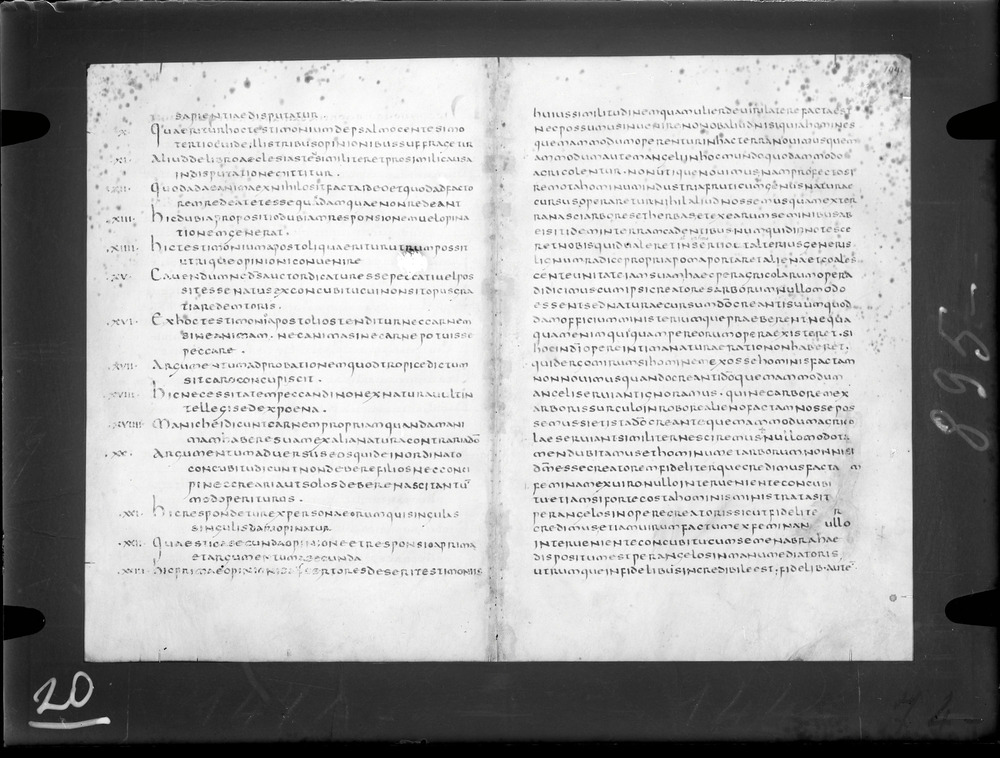 sapientiae disputatur.
.X. Quaeritur hoc testimonium de psalmo centesimo
tertio cuide illis tribus opinionibus suffragetur
.XI. Aliud de libro aeclesiastes similiter et pro simili causa
in disputatione cittitur.
.XII. Quod ad as anima ex nihilo sit facta de deo et quod ad facto
rem redeat et esse quaedam quae non redeant
.XIII. Hic dubia propositio dubiam responsionem vel opina
tionem generat.
.XIIII. Hic testimonium apostoli quaeritur utrum possit
utrique opinioni convenire
.XV. Cavendum ne ds auctor dicatur esse peccati vel pos
sit esse natus ex concubitu cui non sit opus gra
tia redemtoris.
.XVI. Ex hoc testimonio apostoli ostenditur nec carnem
sine animam. nec anima sine carne potuisse
peccare.
.XVII. Argumentum ad probationem quod tropice dictum
sit caro concupiscit.
.XVIII. Hic necessitatem peccandi non ex natura vult in
tellegi sed ex poena.
.XVIIII. Manichei dicunt carnem propriam quandam ani
mam habere suam ex alia natura contraria do
.XX. Argumentum adversus eos qui de inordinato
concubitu dicunt non debere filios nec conci
pi nec creari aut solos debere nasci tantu
modo perituros.
.XXI. Hic respondetur ex persona eorum qui singulas
singulis dari opinatur
.XXII. Quaestio secunda opinione et responsio a prima
et argumentum a secunda
.XXIII. Hic primae opinionis assertores deseri testimoniis
huius similitudinem qua mulier de viri latere facta est
nec possumus invenire non ob aliud nisi quia homines
quemammodum operentur in hac terra novimus quem
ammodum autem angeli in hoc mundo quodammodo
agricolentur. non utique novimus nam profecto si
remota hominum industria fruticum genus naturae
cursus operaretur nihil aliud nossemus quam ex ter
ra nasci arbores et herbas et ex earum seminibus ab
eis itidem in terram cadentibus numquid innotesce
ret nobis quid valeret insertio ut alterius generis
lignum radice propria poma portaret aliena et coales
cente unitate iam sua haec per agricolarum opera
didicimus cum ipsi creatores arborum nullo modo
essent sed naturae cursum do creanti suum quod
dam officium ministeriumque praeberent nequa
quam enim quicquam per eorum opera existeret. si
hoc in di opere intima natura ratio non haberet.
quid ergo mirum si hominem ex osse hominis factam
non novimus quando creanti do quemammodum
angeli serviant ignoramus. qui nec arborem ex
arboris surculo in robore alieno factam nosse pos
semus si et ista do creante quemammodum agrico
lae serviant similiter nesciremus nullo modo ta
men dubitamus et hominum et arborum nonnisi
dm esse creatorem fideliterque credimus facta m
feminam ex viro nullo interveniente concubi
tu etiam si forte costa hominis ministrata sit
per angelos in opere creatoris sicut fidelite r
credimus etiam virum factum ex femina n ullo
interveniente concubitu cum semen abrahae
dispositum est per angelos in manu mediatoris
utrumque infidelibus incredibile est. fidelib. aute
20
895